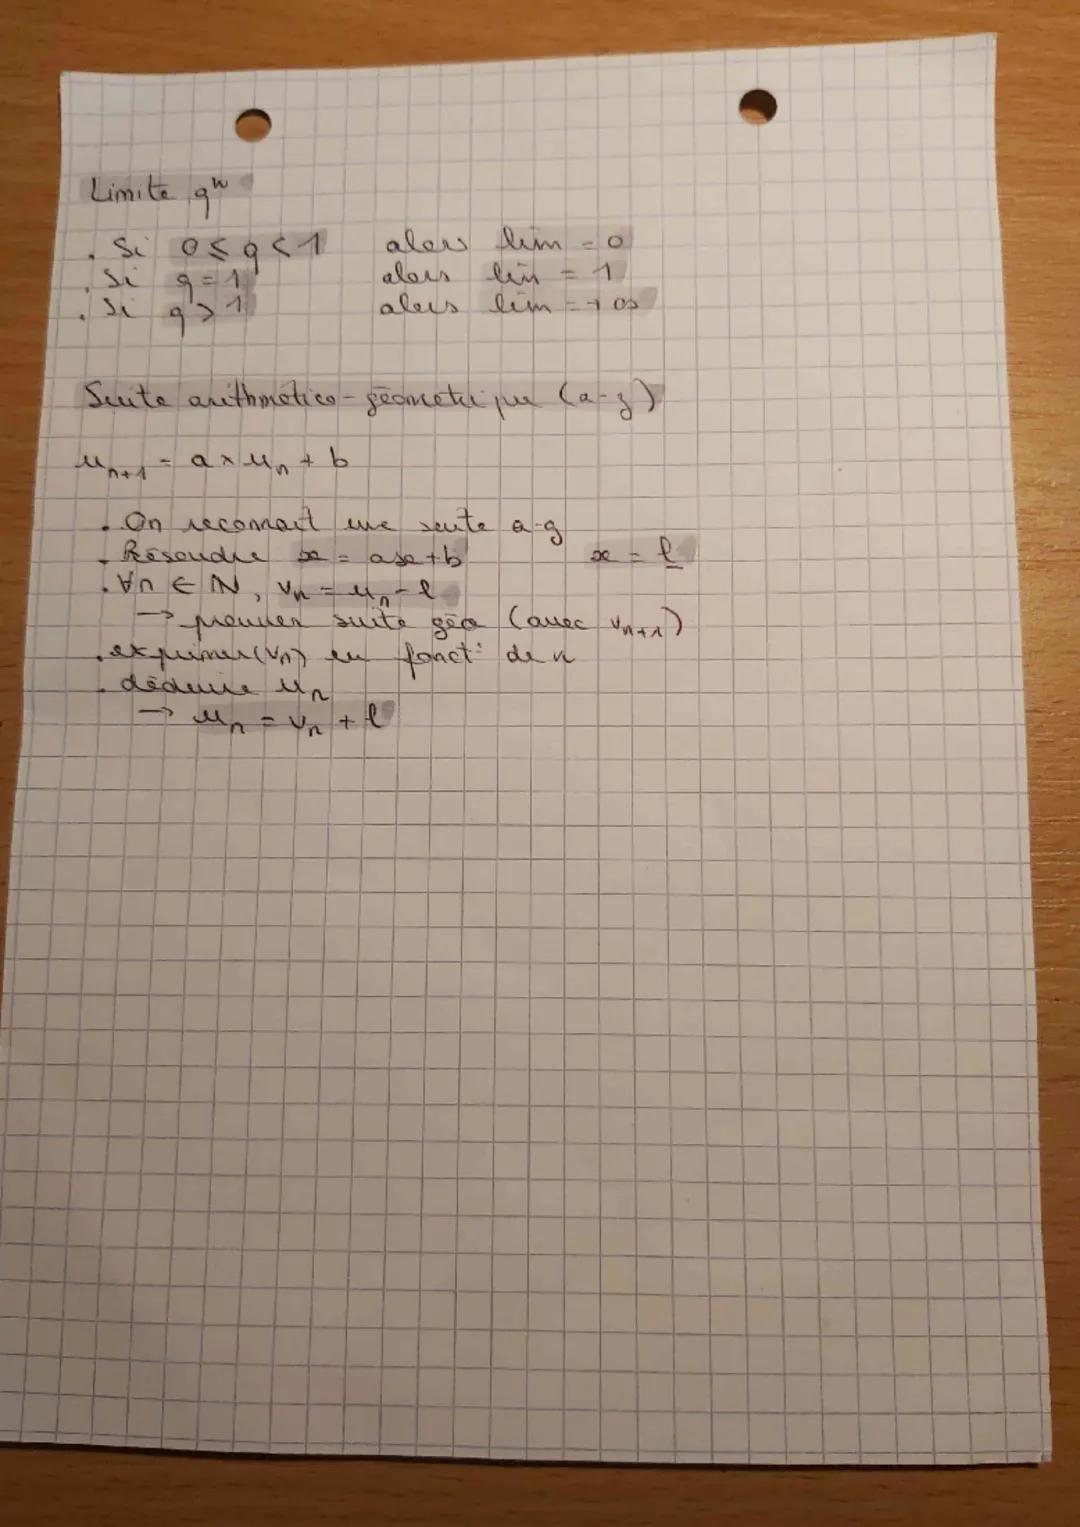 Limite qⁿ
. Si 0 ≤ q < 1 alors lim = 0
. Si q = 1 alors lim = 1
. Si q > 1 alors lim = +∞
Suite arithmético-géométrique (a-g)
uₙ₊₁ = a × uₙ + b
. On reconnait une suite a-g
. Résoudre x = ax + b x = l
. ∀n ∈ ℕ, vₙ = uₙ - l
→ prouver suite géo (avec vₙ₊₁)
. exprimer (vₙ) en fonct° de n
. déduire uₙ
→ uₙ = vₙ + l